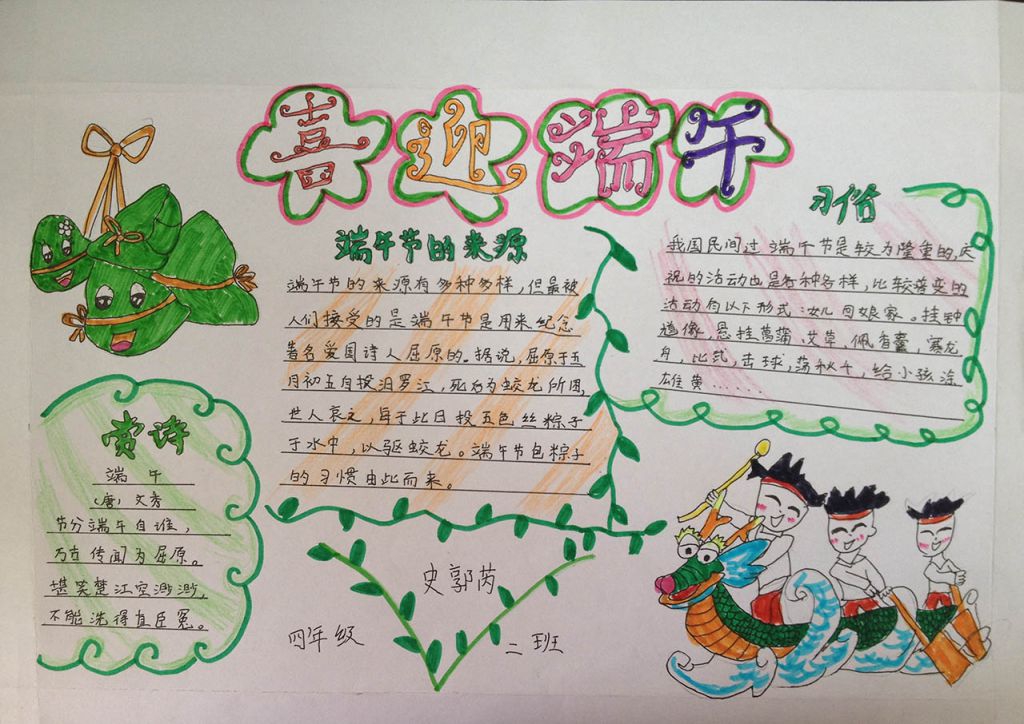 喜迎端午
端午节的来源
端午节的来源有多种多样,但最被
人们接受的是端午节是用来纪念
著名爱国诗人屈原的。据说,屈原于五
月初五自投汨罗江,死后为蛟龙所困,
世人哀之,每于此日投五色丝粽子
于水中,以驱蛟龙。端午节包粽子
的习惯由此而来。
习俗
我国民间过端午节是较为隆重的,庆
祝的活动也是各种各样,比较普变的
活动有以下形式:女儿回娘家。挂钟
馗像,悬挂菖蒲,艾草,佩香囊,赛龙
舟,比武,击球,荡秋千,给小孩涂
雄黄……
赏诗
端午
(唐)文秀
节分端午自谁,
万古传闻为屈原。
堪笑楚江空渺渺,
不能洗得直臣冤。
史郭芮
四年级 二班